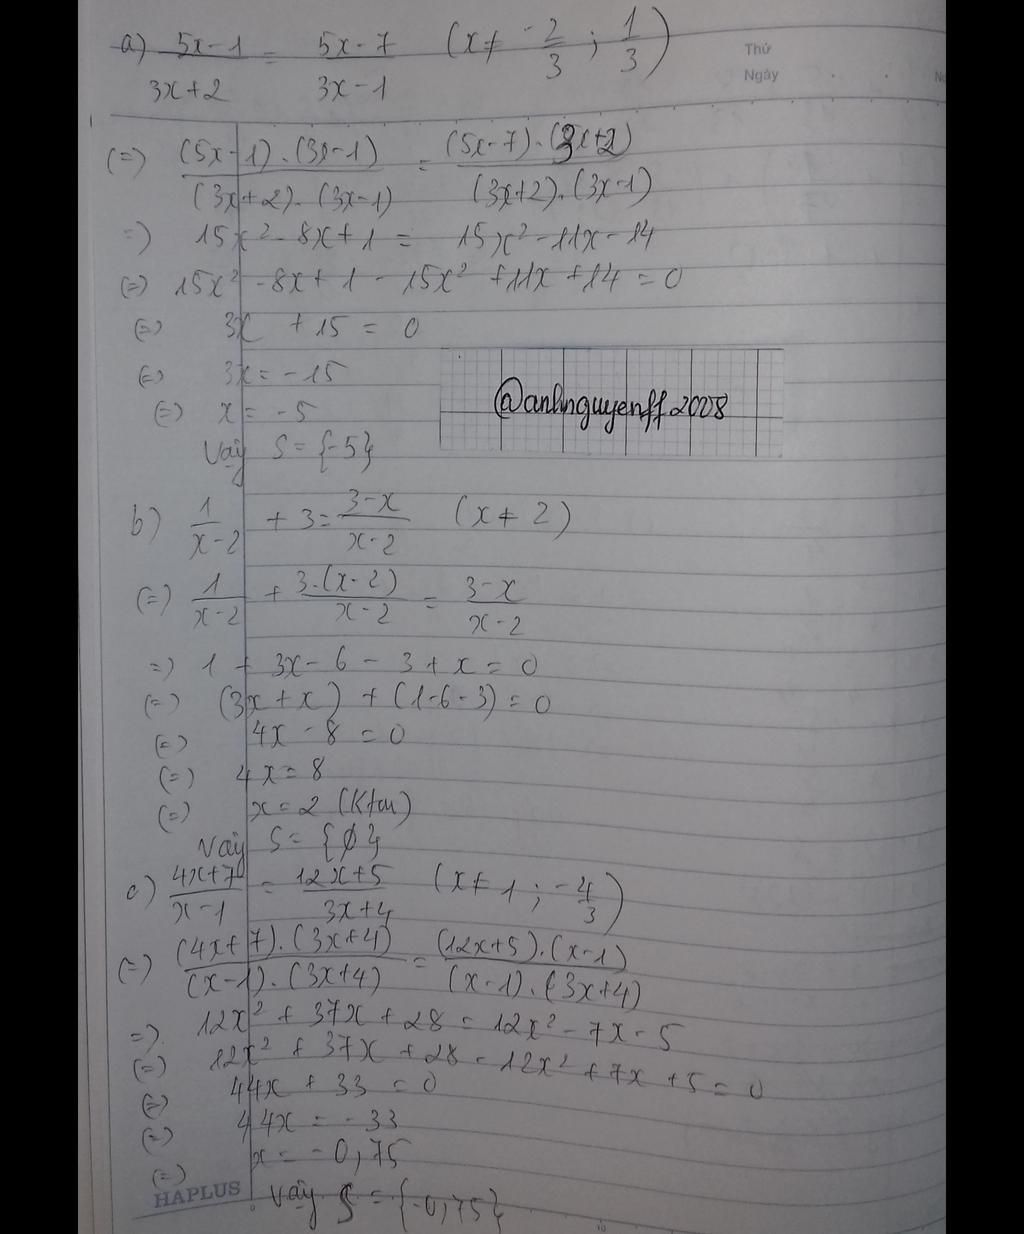 a) (5x-1)/(3x+2) = (5x-7)/(3x-1) (x ≠ -2/3 ; 1/3)
Thứ
Ngày
(=) ((5x-1).(3x-1))/((3x+2).(3x-1)) = ((5x-7).(3x+2))/((3x+2).(3x-1))
=) 15x² - 8x + 1 = 15x² - 11x - 14
(=) 15x² - 8x + 1 - 15x² + 11x + 14 = 0
(=) 3x + 15 = 0
(=) 3x = -15
(=) x = -5
@anhnguyenff2008
Vậy S = {-5}
b) 1/(x-2) + 3 = (3-x)/(x-2) (x ≠ 2)
(=) 1/(x-2) + (3.(x-2))/(x-2) = (3-x)/(x-2)
=) 1 + 3x - 6 - 3 + x = 0
(=) (3x + x) + (1-6-3) = 0
(=) 4x - 8 = 0
(=) 4x = 8
(=) x = 2 (Ktm)
Vậy S = {∅}
c) (4x+7)/(x-1) = (12x+5)/(3x+4) (x ≠ 1 ; -4/3)
(=) ((4x+7).(3x+4))/((x-1).(3x+4)) = ((12x+5).(x-1))/((x-1).(3x+4))
=) 12x² + 37x + 28 = 12x² - 7x - 5
(=) 12x² + 37x + 28 - 12x² + 7x + 5 = 0
(=) 44x + 33 = 0
(=) 44x = -33
(=) x = -0,75
HAPLUS
Vậy S = {-0,75}